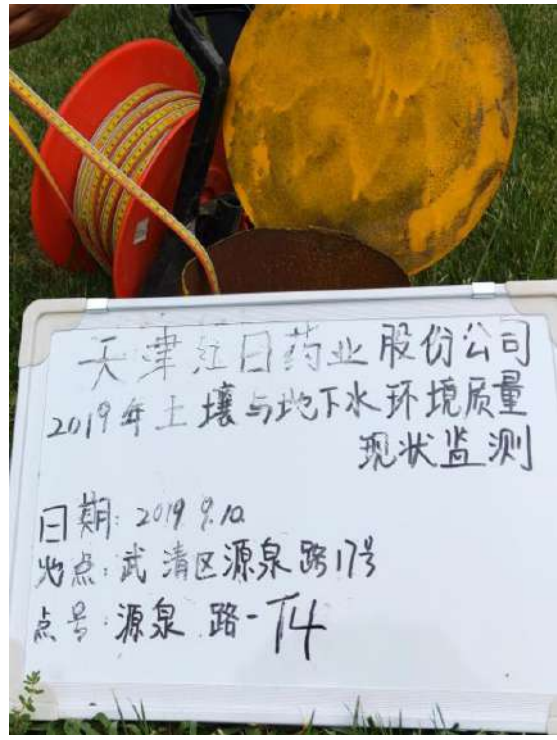 天津红日药业股份公司
2019年土壤与地下水环境质量
现状监测
日期: 2019.9.10
地点: 武清区源泉路17号
点号: 源泉路-T4